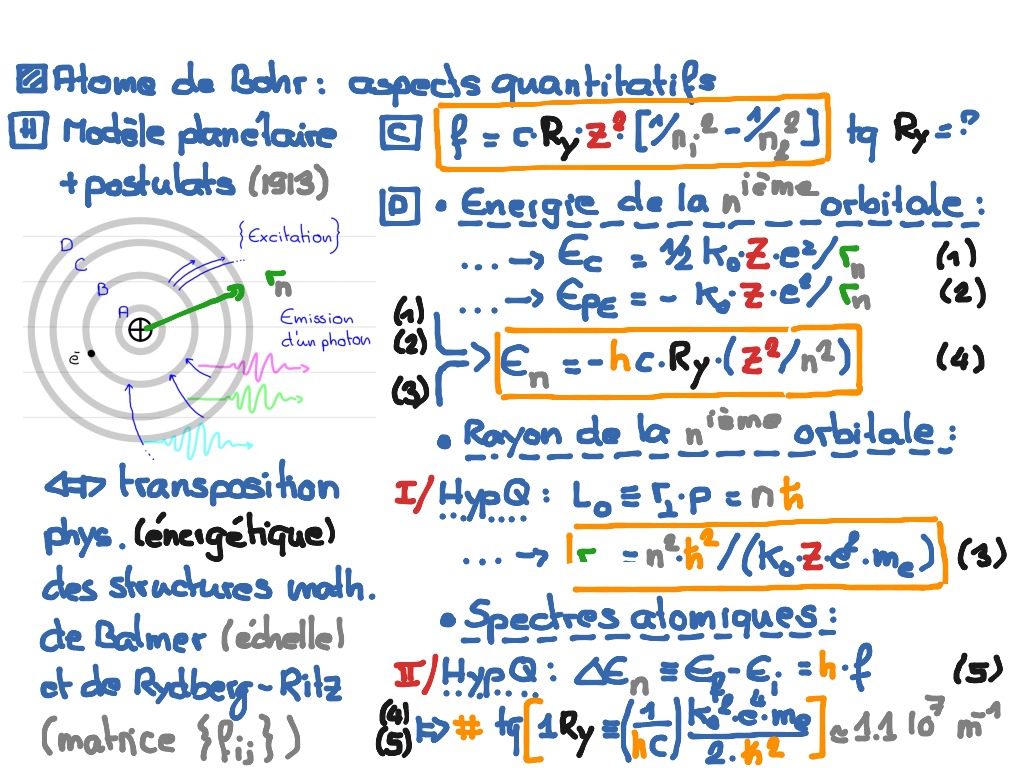 Atome de Bohr : aspects quantitatifs
H Modèle planétaire
+ postulats (1913)
D
C
B
A
{Excitation}
...
rn
Emission
d'un photon
e-
...
<=> transposition
phys. (énergétique)
des structures math.
de Balmer (échelle)
et de Rydberg-Ritz
(matrice {fij})
C f = c·Ry·Z²·[1/ni² - 1/n2²] tq Ry = ?
D • Energie de la nième orbitale :
... → Ec = 1/2 k0·Z·e²/rn (1)
... → EPE = - k0·Z·e²/rn (2)
(1)
(2)
(3)
En = - hc·Ry·(Z²/n²) (4)
• Rayon de la nième orbitale :
I/ HypQ : L0 ≡ r⊥·p = nħ
... → r = n²·ħ²/(k0·Z·e²·me) (3)
• Spectres atomiques :
II/ HypQ : ΔEn ≡ Ef - Ei = h·f (5)
(4)
(5) ⇒ # tq [1Ry ≡ (1/hc) k0²·e⁴·me / 2·ħ²] ≃ 1.1 10⁷ m⁻¹